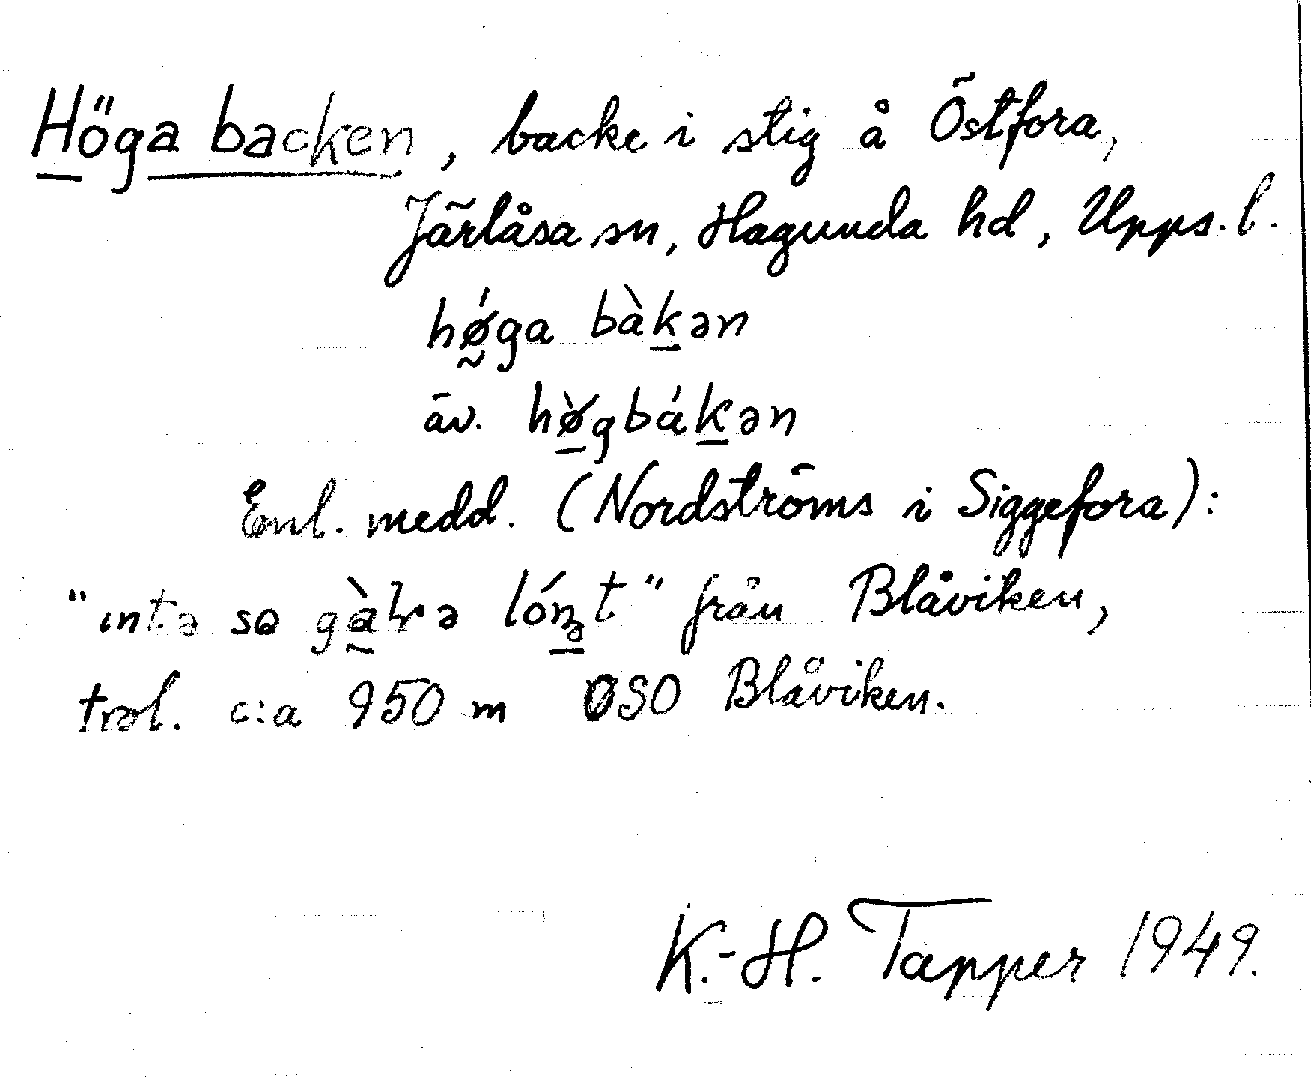 Höga backen, backe i stig å Östfora,
Järlåsa sn, Hagunda hd, Upps. l.
hǿ̰ga bàḵən
äv. hø̱̀gbáḵən
Enl. medd. (Nordströms i Siggefora):
"ıntə so lóṉt" från Blåviken,
trol. c:a 950 m OSO Blåviken.
K.-H. Tapper 1949.